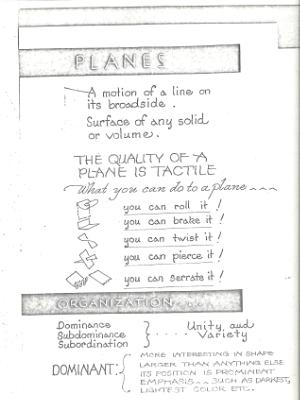 PLANES
A motion of a line on
its broadside.
Surface of any solid
or volume.
THE QUALITY OF A
PLANE IS TACTILE
What you can do to a plane ~~~
you can roll it!
you can brake it!
you can twist it!
you can pierce it!
you can serrate it!
ORGANIZATION...
Dominance
Subdominance
Subordination
Unity, and
Variety
DOMINANT:
MORE INTERESTING IN SHAPE
LARGER THAN ANYTHING ELSE
ITS POSITION IS PROMINENT
EMPHASIS.. SUCH AS DARKEST,
LIGHTEST COLOR ETC.